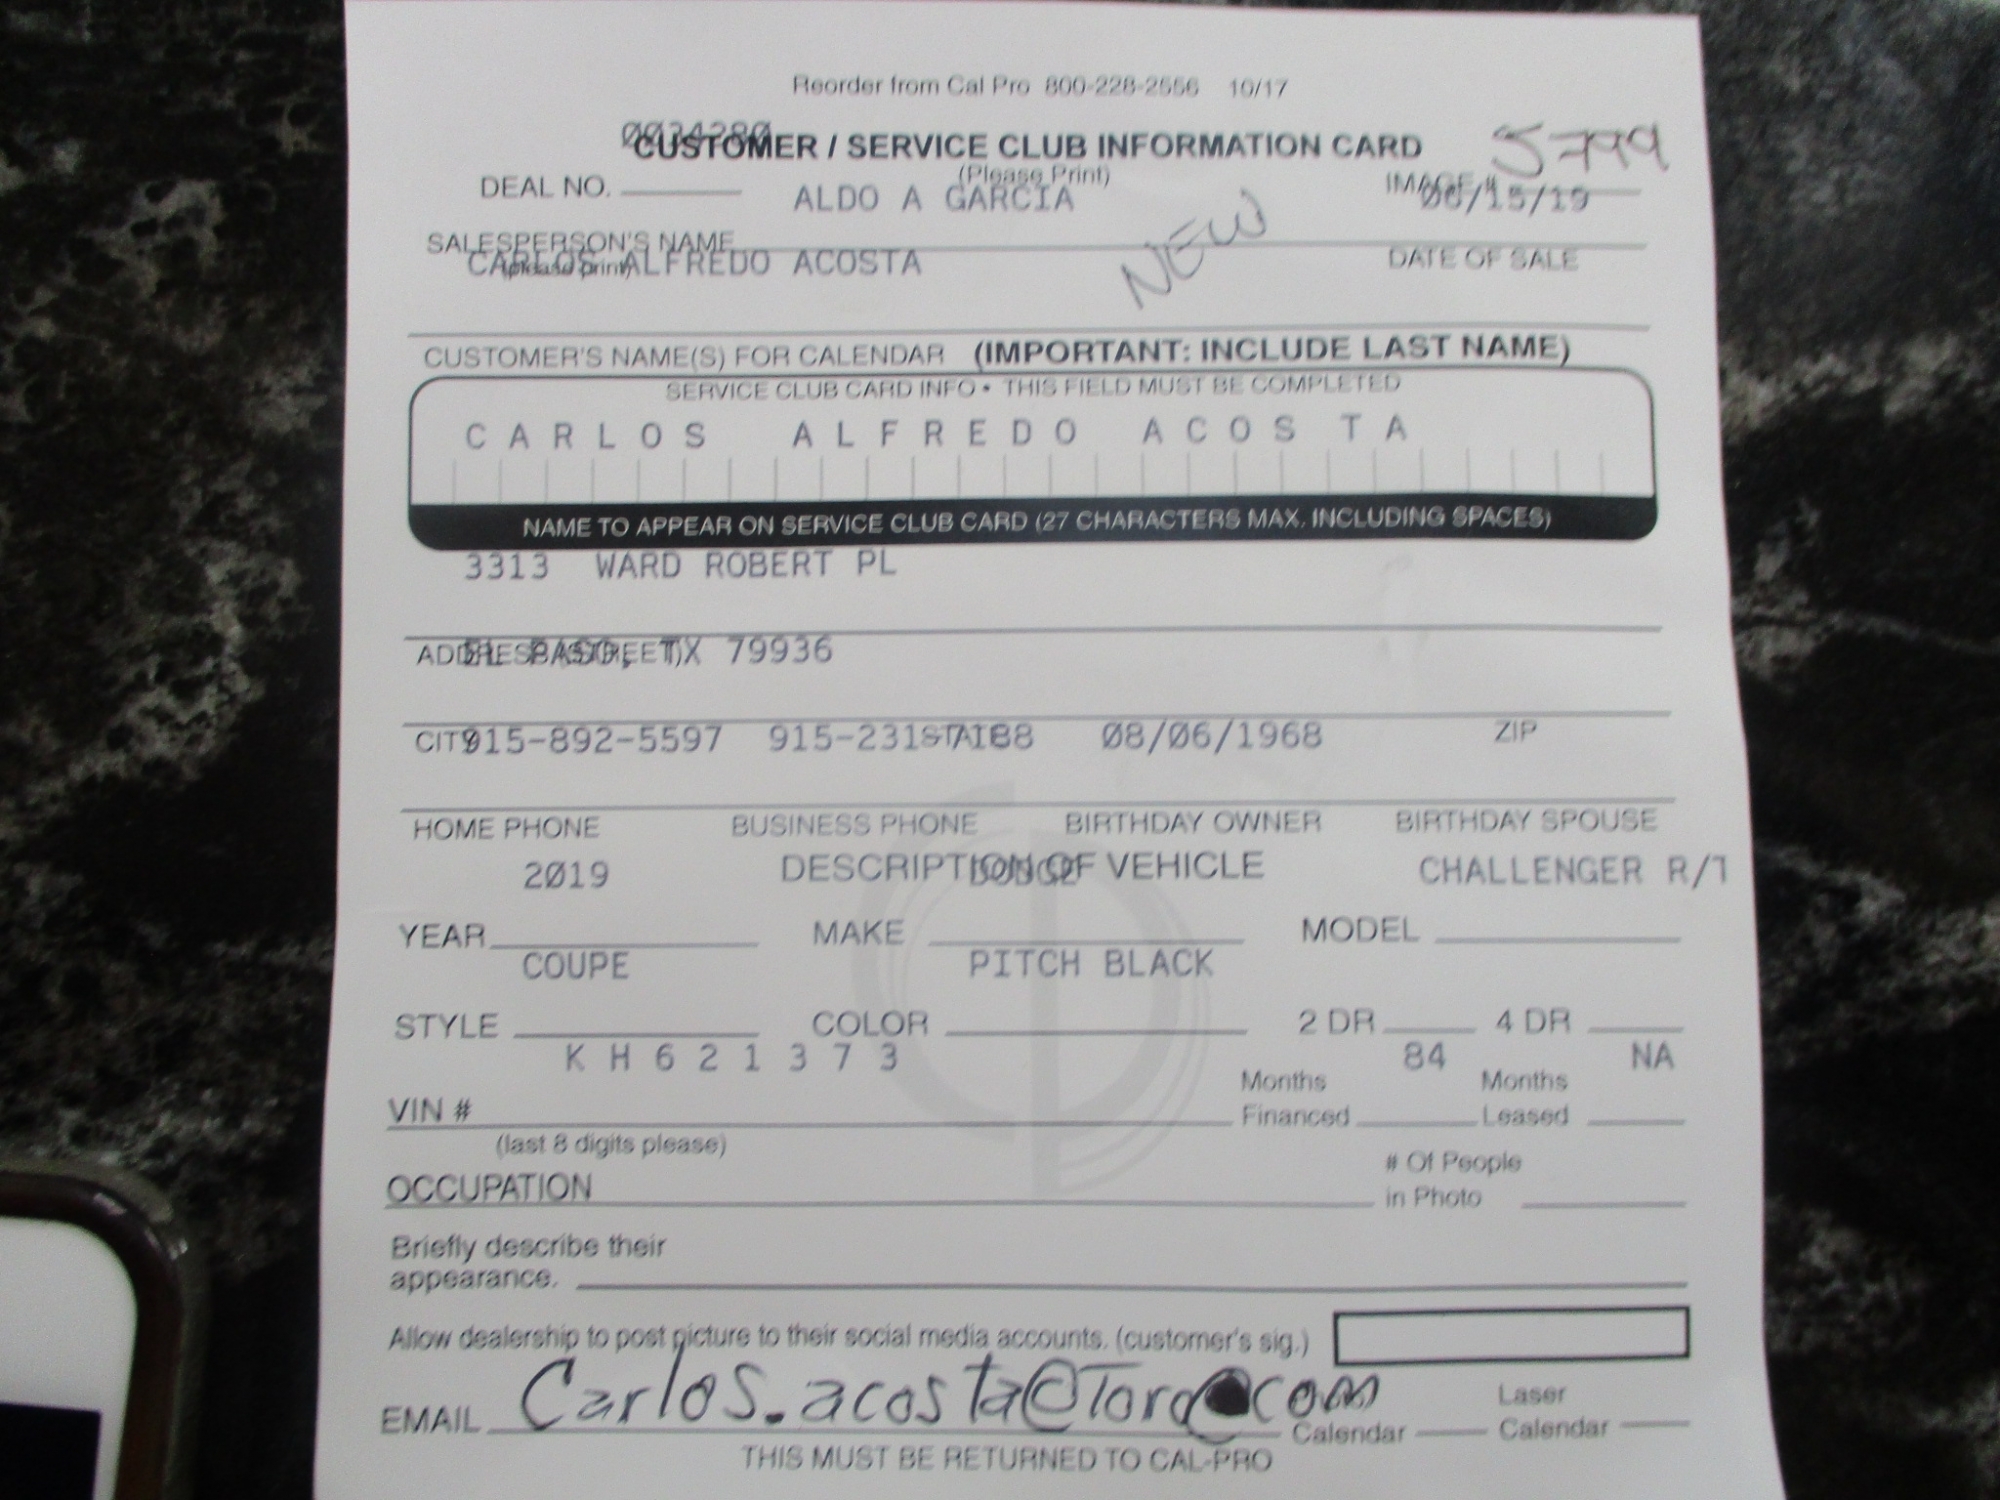 Reorder from Cal Pro 800-228-2556 10/17
0034280
CUSTOMER / SERVICE CLUB INFORMATION CARD
(Please Print)
5-799
DEAL NO. ALDO A GARCIA IMAGE # 06/15/19
SALESPERSON'S NAME NEW DATE OF SALE
(please print)
CARLOS ALFREDO ACOSTA
CUSTOMER'S NAME(S) FOR CALENDAR (IMPORTANT: INCLUDE LAST NAME)
SERVICE CLUB CARD INFO • THIS FIELD MUST BE COMPLETED
CARLOS ALFREDO ACOSTA
NAME TO APPEAR ON SERVICE CLUB CARD (27 CHARACTERS MAX. INCLUDING SPACES)
3313 WARD ROBERT PL
ADDRESS (STREET)
EL PASO, TX 79936
CITY STATE ZIP
915-892-5597 915-231- 08/06/1968
HOME PHONE BUSINESS PHONE BIRTHDAY OWNER BIRTHDAY SPOUSE
DESCRIPTION OF VEHICLE
2019 DODGE CHALLENGER R/T
YEAR MAKE MODEL
COUPE PITCH BLACK
STYLE COLOR 2 DR 4 DR
KH621373 84 NA
VIN # Months Financed Months Leased
(last 8 digits please)
OCCUPATION # Of People in Photo
Briefly describe their
appearance.
Allow dealership to post picture to their social media accounts. (customer's sig.)
EMAIL Carlos.acosta@Toro.com Calendar Laser Calendar
THIS MUST BE RETURNED TO CAL-PRO